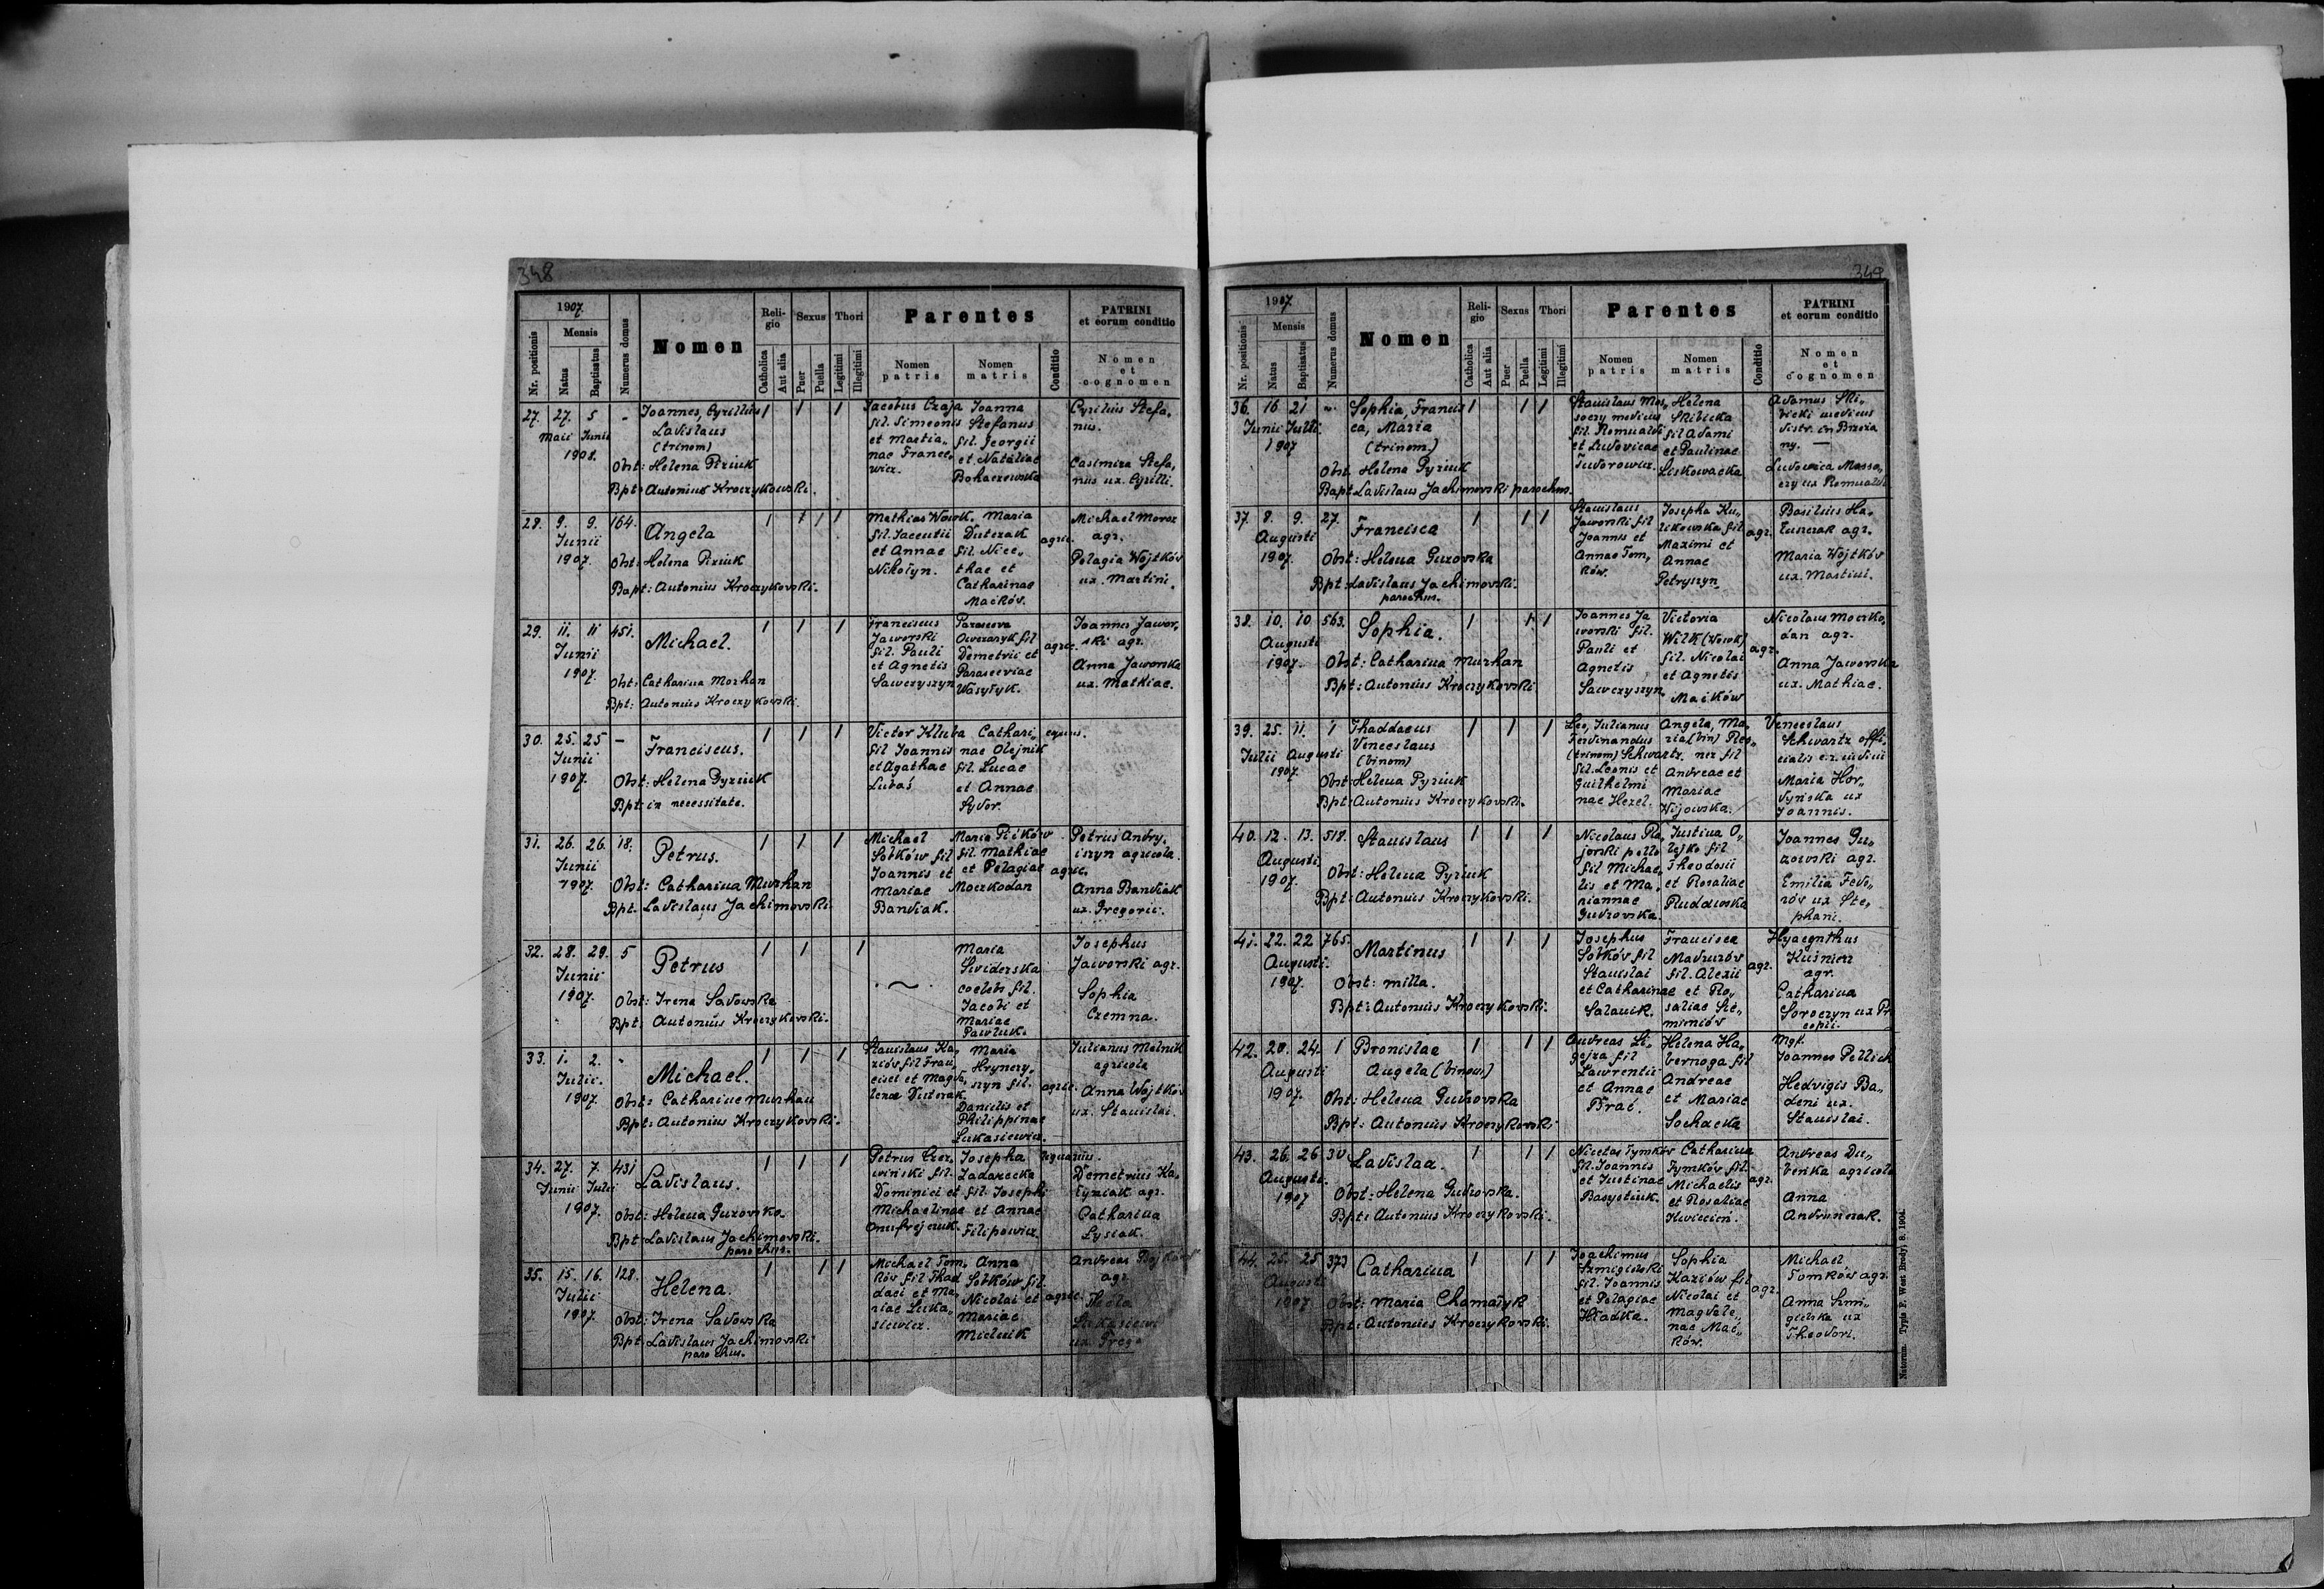 348
1907.
Nr. positionis
Mensis
Natus
Baptisatus
Numerus domus
Nomen
Religio
Catholica
Aut alia
Sexus
Puer
Puella
Thori
Legitimi
Illegitimi
Parentes
Nomen patris
Nomen matris
Conditio
PATRINI
et eorum conditio
Nomen
et
cognomen
27. 27. 5 - Joannes, Cyrillus 1 1 1 Jacobus Czaja Joanna Cyrillus Stefa„
Maii Junii Ladislaus fil. Simeonis Stefanus nus.
1908. (trinom) et Martia„ fil. Georgii
Obst: Helena Piziuk nae France„ et Nataliae Casimira Stefa„
wicz. Bohaczewska nus ux. Cyrilli.
Bpt: Antonius Kroczykowski.
28. 9. 9. 164. Angela 1 1 1 1 Mathias Wowk. Maria agric. Michael Moroz
Junii fil. Jacentii Dutczak agr.
1907. Obst: Helena Piziuk et Annae fil. Nice„ Pelagia Wojtków
Nikołyn. thae et ux. Martini.
Bapt: Antonius Kroczykovski. Catharinae
Maćków.
29. 11. 11 451. Michael. 1 1 1 Franciscus Parasceva agric. Joannes Jawor„
Junii Jaworski Owczaryk fil ski agr.
1907. fil. Pauli Demetrii et Anna Jaworska
Obst: Catharina Morhan et Agnetis Parasceviae ux. Mathiae.
Bpt: Antonius Kroczykowski. Sawczyszyn Wasyłyk.
30. 25. 25 - Franciscus. 1 1 1 Victor Kluba Cathari„
Junii fil Joannis nae Olejnik
1907. Obst: Helena Pyziuk et Agathae fil. Lucae
Bpt: in necessitate. Lubaś et Annae
Sydor.
31. 26. 26. 18. Petrus. 1 1 1 Michael Maria Pićków agric. Petrus Andry„
Junii Sołków fil fil. Mathiae iszyn agricola.
1907. Obst: Catharina Murhan Joannis et et Pelagiae Anna Bandiak
Bpt. Ladislaus Jachimovski Mariae Moczkodan ux. Gregorii.
Bandiak.
32. 28. 29. 5 Petrus 1 1 1 Maria Josephus
Junii Sviderska Jaworski agr.
1907. Obst: Irena Sadowska coelebs fil. Sophia
Bpt: Antonius Kroczykovski. Jacobi et Czemna.
Mariae
Pawluk.
33. 1. 2. - Michael. 1 1 1 Stanislaus Ka„ Maria agric. Julianus Melnik
Julii. ziów fil Fran„ Hrynczy„ agricola
1907. Obst: Catharine Murhan cisci et Magda„ szyn fil. Anna Wojtków
Bpt: Antonius Kroczykovski. lenae Dutczak. Danielis et ux. Stanislai.
Philippinae
Łukasiewicz.
34. 27. 7. 431 Ladislaus. 1 1 1 Petrus Czer„ Josepha Demetrius Ka„
Junii Julii wiński fil. Zadarecka łyniak agr.
1907. Obst: Helena Guzovska Dominici et fil. Josephi Catharina
Bpt: Ladislaus Jachimovski. Michaelinae et Annae Łysiak.
parochus. Onufrejczuk. Filipowicz.
35. 15. 16. 128. Helena. 1 1 1 Michael Tom„ Anna agric. Andreas
Julii ków fil Thad Sołków fil. agr.
1907. Obst: Irena Sadowska daei et Ma„ Nicolai et Thecla
Bpt: Ladislaus Jachimovski riae Łuka„ Mariae
parochus. siewicz. Mielnik
349
1907.
Nr. positionis
Mensis
Natus
Baptisatus
Numerus domus
Nomen
Religio
Catholica
Aut alia
Sexus
Puer
Puella
Thori
Legitimi
Illegitimi
Parentes
Nomen patris
Nomen matris
Conditio
PATRINI
et eorum conditio
Nomen
et
cognomen
36. 16 21 - Sophia, Francis 1 1 1 Stanislaus Mos„ Helena Adamus Ski„
Junii Julii. ca, Maria soczy medicus Skibicka bicki medicus
1907 (trinom) fil. Romualdi fil Adami distr. in Brzeża
Obst. Helena Pyziuk et Ludovicae et Paulinae ny. —
Bapt Ladislaus Jachimovski parochus. Tudorowicz. Liskowacka Ludovica Mosso„
czy ux Romualdi
37. 8. 9. 27. Francisca 1 1 1 Stanislaus Josepha Ku„ agr. Basilius Ha„
Augusti Jaworski fil likowska fil łunczak agr.
1907. Obst: Helena Guzovska Joannis et Maximi et Maria Wojtków
Bpt: Ladislaus Jachimovski. Annae Tom„ Annae ux. Martini.
parochus. ków. Petryszyn
38. 10. 10 563. Sophia. 1 1 1 Joannes Ja Victoria agr. Nicolaus Moczko„
Augusti worski fil. Wilk (Wowk) dan agr.
1907. Obst: Catharina Murhan Pauli et fil. Nicolai Anna Jaworska
Bpt: Antonius Kroczykovski Agnetis et Agnetis ux. Mathiae.
Sawczyszyn Maćków
39. 25. 11. 1 Thaddaeus 1 1 1 Leo, Julianus Angela, Ma„ Venceslaus
Julii Augusti Venceslaus Ferdinandus ria (bin) Schwartz offi„
1907. (binom) (trinom) Schwartz. fil cialis
Obst: Helena Pyziuk fil. Leonis et Andreae et Maria Hor„
Bpt: Antonius Kroczykovski. Guilhelmi Mariae dyńska ux
nae Hezel. Wijowska. Joannis.
40. 12. 13. 518. Stanislaus 1 1 1 Nicolaus Pla Justina O„ Joannes Gu„
Augusti jorski lejko fil zowski agr.
1907. Obst: Helena Pyziuk fil Michae„ Theodosii Emilia Fedo„
Bpt: Antonius Kroczykovski. lis et Ma„ et Rosaliae rów ux Ste„
riannae Ruddowska phani.
Gudzovska.
41. 22. 22 765. Martinus 1 1 1 Josephus Francisca agr. Hyacynthus
Augusti. Sołków fil Madruzów Kuśnierz
1907. Obst: nulla. Stanislai fil. Alexii agr.
Bpt: Antonius Kroczykovski. et Catharinae et Ro„ Catharina
Salanik. saliae Sie„ Soroczyn ux
miniów
42. 20. 24. 1 Bronislae 1 1 1 Andreas Li„ Helena Ha„ Mgf.
Augusti Angela (binom) gejza fil bernoga fil Joannes Pellich
1907. Obst: Helena Gudzovska Lawrentii Andreae Hedvigis Ba„
Bpt: Antonius Kroczykovski et Annae et Mariae deni ux.
Brac. Sochacka Stanislai.
43. 26. 26 30 Ladislaa. 1 1 1 Nicetas Tymków Catharina agr. Andreas Du„
Augusti. fil. Joannis Tymków fil. benka agricola
1907 Obst: Helena Gudzovska. et Justinae Michaelis Anna
Bpt: Antonius Kroczykovski. et Rosaliae Andrunczak.
Kwiecień.
44. 25. 25 373 Catharina 1 1 1 Joachimus Sophia agr. Michael
Augusti Szmigielski Kaziów fil Tomków agr.
1907 Obst: Maria Chomatyk fil. Joannis Nicolai et Anna Szmi„
Bpt: Antonius Kroczykovski. et Pelagiae Magdale„ gielska ux
Hładka. nae Mać„ Theodori.
ków.
Natorum. Typis F. West Brody. 8. 1904.